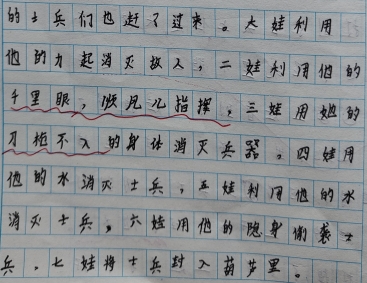 的士兵们也赶了过来。大娃利用
他的力起消灭敌人，二娃利用他的
千里眼，顺风儿指挥，三娃用她的
刀枪不入的身体消灭兵器，四娃用
他的水消灭士兵，五娃利用他的水
消灭士兵，六娃用他的隐身偷袭士
兵，七娃将士兵封入葫芦里。